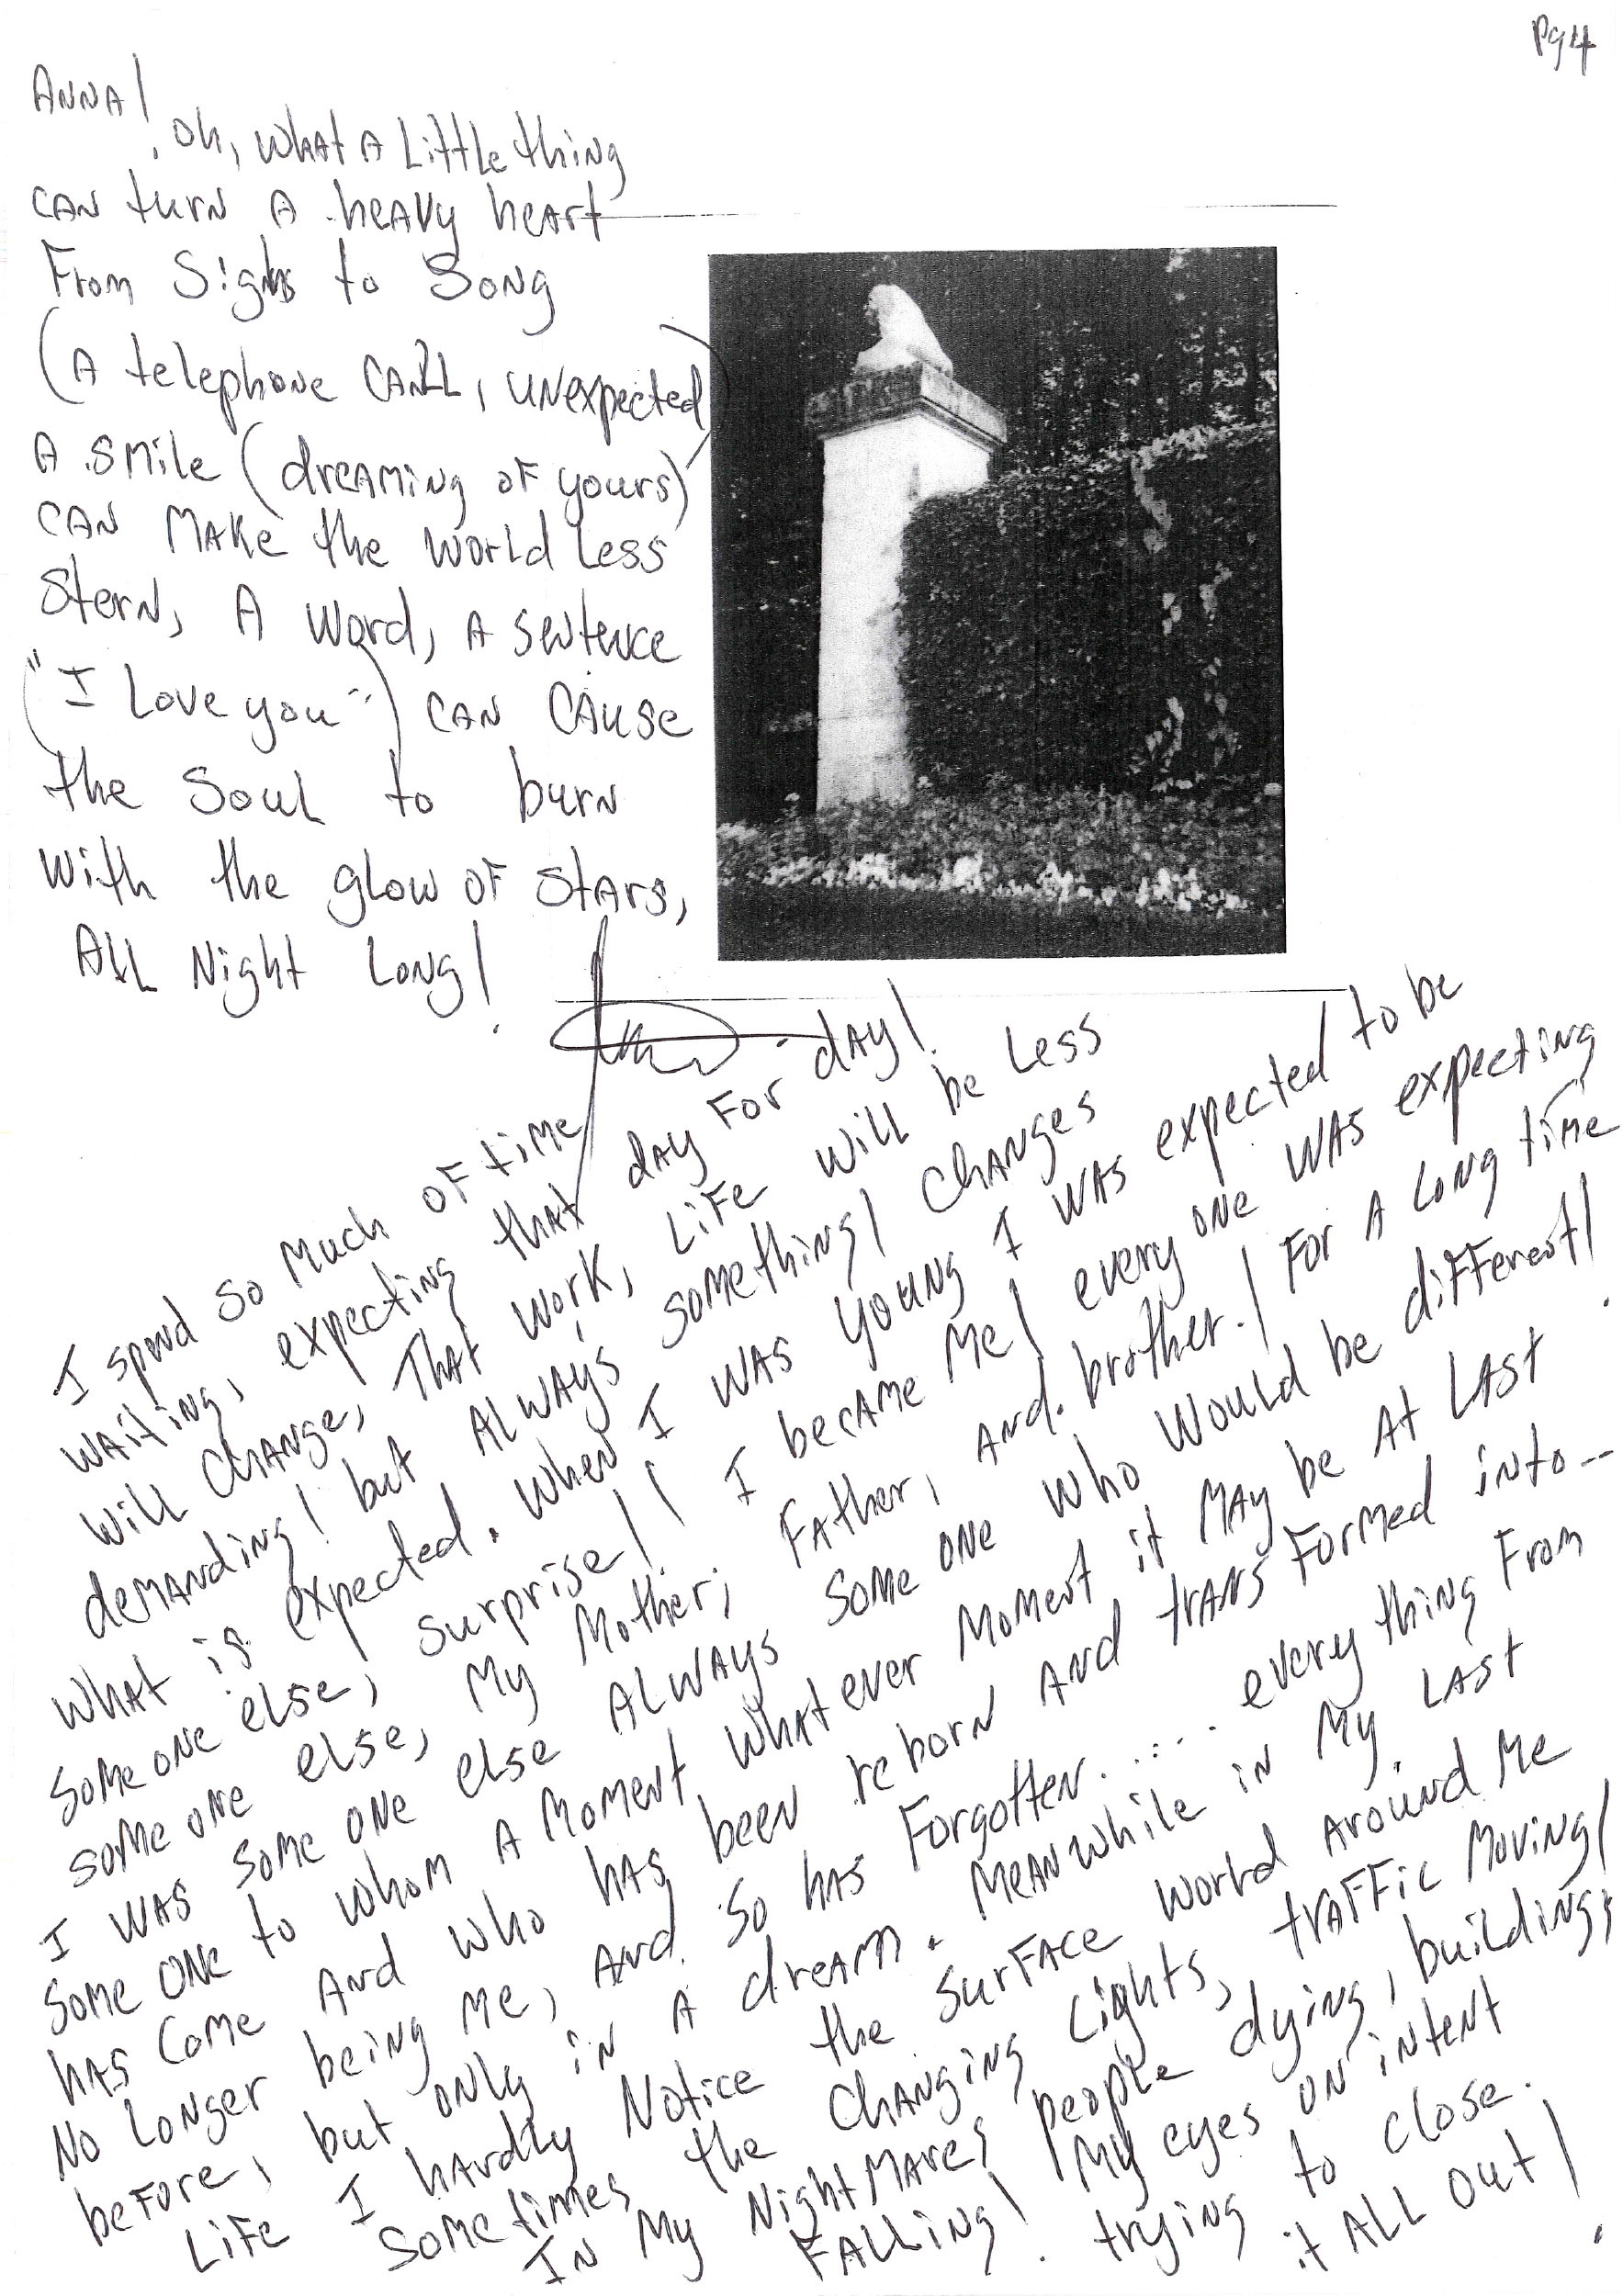 Pg4
ANNA!
Oh, what A Little thing
CAN turn A heavy heart
From Sighs to Song
(A telephone CALL, unexpected)
A smile (dreaming of yours)
CAN MAKE the world Less
Stern, A word, A sentence
("I Love you") CAN CAUSE
the Soul to burn
with the glow of Stars,
ALL Night Long!
I spend so much of time
waiting, expecting that day for day!
will change, That work, Life will be Less
demanding! but ALWAYS something! changes
what is expected. when I was young I was expected to be
some one else, surprise!! I became Me! every one was expecting
some one else, My Mother, Father, and brother.! For A Long time
I was some one else ALWAYS some one who would be different!
some one to whom A Moment whatever Moment it May be At Last
has come And who has been reborn And transformed into --
No Longer being Me, And so has Forgotten..... every thing From
before, but only in A dream. Meanwhile in My Last
Life I hardly Notice the surface world Around Me
sometimes the changing Lights, traffic Moving!
In My Nightmares people dying, buildings
FALLing! My eyes on intent
trying to close.
it ALL out!